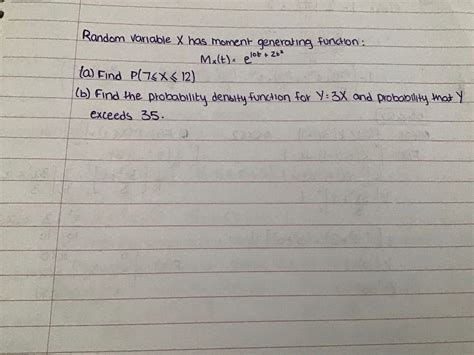 Random variable X has moment generating function:
Mx(t) = e^10t + 2t²
(a) Find P(7≤X≤12)
(b) Find the probability density function for Y=3X and probability that Y
exceeds 35.